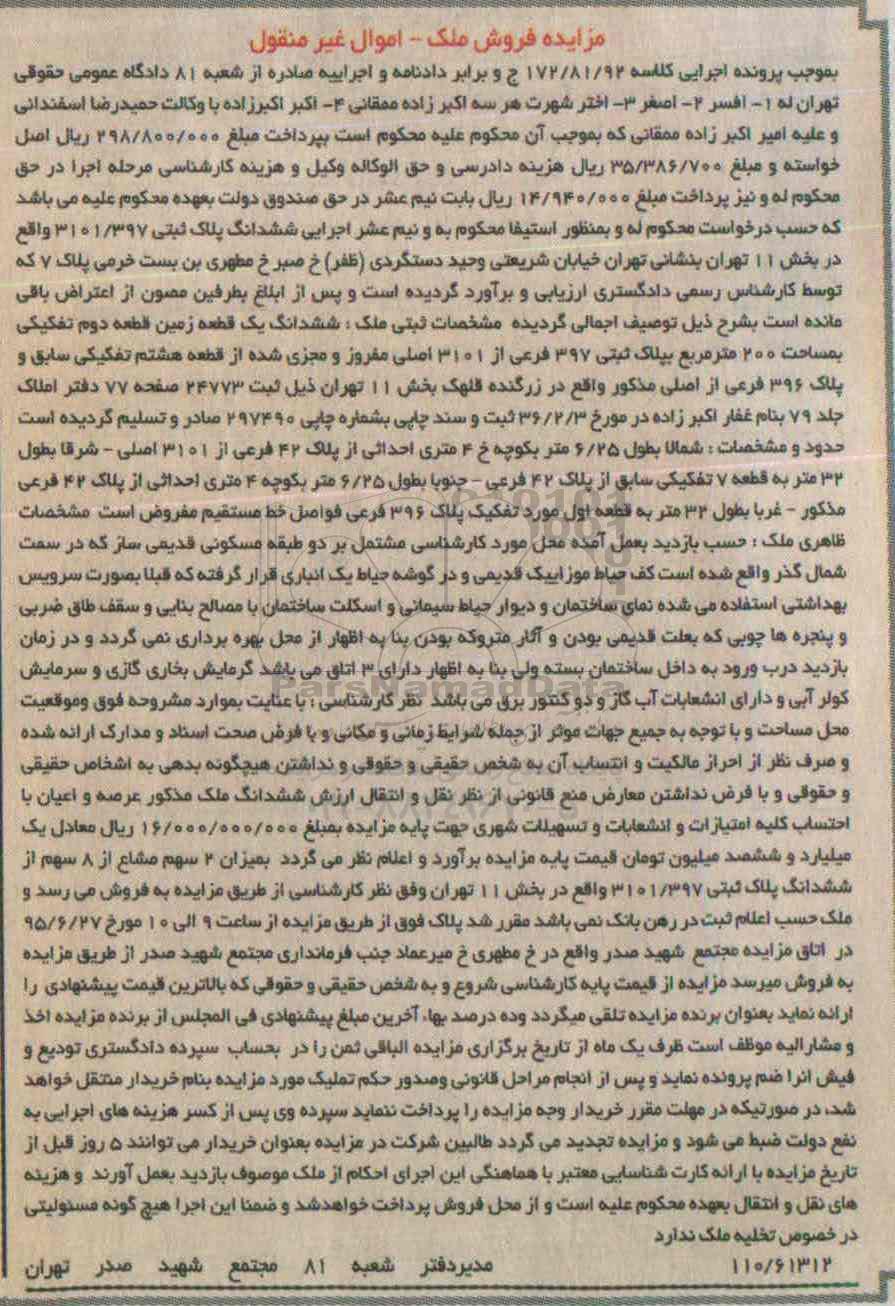 مزایده فروش ملک - اموال غیر منقول
بموجب پرونده اجرایی کلاسه ۱۷۲/۸۱/۹۲ ج و برابر دادنامه و اجراییه صادره از شعبه ۸۱ دادگاه عمومی حقوقی
تهران له ۱- افسر ۲- اصغر ۳- اختر شهرت هر سه اکبر زاده ممقانی ۴- اکبر اکبرزاده با وکالت حمیدرضا اسفندانی
و علیه امیر اکبر زاده ممقانی که بموجب آن محکوم علیه محکوم است بپرداخت مبلغ ۲۹۸/۸۰۰/۰۰۰ ریال اصل
خواسته و مبلغ ۳۵/۳۸۶/۷۰۰ ریال هزینه دادرسی و حق الوکاله وکیل و هزینه کارشناسی مرحله اجرا در حق
محکوم له و نیز پرداخت مبلغ ۱۴/۹۴۰/۰۰۰ ریال بابت نیم عشر در حق صندوق دولت بعهده محکوم علیه می باشد
که حسب درخواست محکوم له و بمنظور استیفا محکوم به و نیم عشر اجرایی ششدانگ پلاک ثبتی ۳۱۰۱/۳۹۷ واقع
در بخش ۱۱ تهران بنشانی تهران خیابان شریعتی وحید دستگردی (ظفر) خ صبر خ مطهری بن بست خرمی پلاک ۷ که
توسط کارشناس رسمی دادگستری ارزیابی و برآورد گردیده است و پس از ابلاغ بطرفین مصون از اعتراض باقی
مانده است بشرح ذیل توصیف اجمالی گردیده مشخصات ثبتی ملک : ششدانگ یک قطعه زمین قطعه دوم تفکیکی
بمساحت ۲۰۰ مترمربع بپلاک ثبتی ۳۹۷ فرعی از ۳۱۰۱ اصلی مفروز و مجزی شده از قطعه هشتم تفکیکی سابق و
پلاک ۳۹۶ فرعی از اصلی مذکور واقع در زرگنده قلهک بخش ۱۱ تهران ذیل ثبت ۲۴۷۷۳ صفحه ۷۷ دفتر املاک
جلد ۷۹ بنام غفار اکبر زاده در مورخ ۳۶/۲/۳ ثبت و سند چاپی بشماره چاپی ۲۹۷۴۹۰ صادر و تسلیم گردیده است
حدود و مشخصات : شمالا بطول ۶/۲۵ متر بکوچه خ ۴ متری احداثی از پلاک ۴۲ فرعی از ۳۱۰۱ اصلی - شرقا بطول
۳۲ متر به قطعه ۷ تفکیکی سابق از پلاک ۴۲ فرعی - جنوبا بطول ۶/۲۵ متر بکوچه ۴ متری احداثی از پلاک ۴۲ فرعی
مذکور - غربا بطول ۳۲ متر به قطعه اول مورد تفکیک پلاک ۳۹۶ فرعی فواصل خط مستقیم مفروض است مشخصات
ظاهری ملک : حسب بازدید بعمل آمده محل مورد کارشناسی مشتمل بر دو طبقه مسکونی قدیمی ساز که در سمت
شمال گذر واقع شده است کف حیاط موزاییک قدیمی و در گوشه حیاط یک انباری قرار گرفته که قبلا بصورت سرویس
بهداشتی استفاده می شده نمای ساختمان و دیوار حیاط سیمانی و اسکلت ساختمان با مصالح بنایی و سقف طاق ضربی
و پنجره ها چوبی که بعلت قدیمی بودن و آثار متروکه بودن بنا به اظهار از محل بهره برداری نمی گردد و در زمان
بازدید درب ورود به داخل ساختمان بسته ولی بنا به اظهار دارای ۳ اتاق می باشد گرمایش بخاری گازی و سرمایش
کولر آبی و دارای انشعابات آب گاز و دو کنتور برق می باشد نظر کارشناسی : با عنایت بموارد مشروحه فوق وموقعیت
محل مساحت و با توجه به جمیع جهات موثر از جمله شرایط زمانی و مکانی و با فرض صحت اسناد و مدارک ارائه شده
و صرف نظر از احراز مالکیت و انتساب آن به شخص حقیقی و حقوقی و نداشتن هیچگونه بدهی به اشخاص حقیقی
و حقوقی و با فرض نداشتن معارض منع قانونی از نظر نقل و انتقال ارزش ششدانگ ملک مذکور عرصه و اعیان با
احتساب کلیه امتیازات و انشعابات و تسهیلات شهری جهت پایه مزایده بمبلغ ۱۶/۰۰۰/۰۰۰/۰۰۰ ریال معادل یک
میلیارد و ششصد میلیون تومان قیمت پایه مزایده برآورد و اعلام نظر می گردد بمیزان ۲ سهم مشاع از ۸ سهم از
ششدانگ پلاک ثبتی ۳۱۰۱/۳۹۷ واقع در بخش ۱۱ تهران وفق نظر کارشناسی از طریق مزایده به فروش می رسد و
ملک حسب اعلام ثبت در رهن بانک نمی باشد مقرر شد پلاک فوق از طریق مزایده از ساعت ۹ الی ۱۰ مورخ ۹۵/۶/۲۷
در اتاق مزایده مجتمع شهید صدر واقع در خ مطهری خ میرعماد جنب فرمانداری مجتمع شهید صدر از طریق مزایده
به فروش میرسد مزایده از قیمت پایه کارشناسی شروع و به شخص حقیقی و حقوقی که بالاترین قیمت پیشنهادی را
ارائه نماید بعنوان برنده مزایده تلقی میگردد وده درصد بهاء آخرین مبلغ پیشنهادی فی المجلس از برنده مزایده اخذ
و مشارالیه موظف است ظرف یک ماه از تاریخ برگزاری مزایده الباقی ثمن را در بحساب سپرده دادگستری تودیع و
فیش انرا ضم پرونده نماید و پس از انجام مراحل قانونی وصدور حکم تملیک مورد مزایده بنام خریدار منتقل خواهد
شد، در صورتیکه در مهلت مقرر خریدار وجه مزایده را پرداخت ننماید سپرده وی پس از کسر هزینه های اجرایی به
نفع دولت ضبط می شود و مزایده تجدید می گردد طالبین شرکت در مزایده بعنوان خریدار می توانند ۵ روز قبل از
تاریخ مزایده با ارائه کارت شناسایی معتبر با هماهنگی این اجرای احکام از ملک موصوف بازدید بعمل آورند و هزینه
های نقل و انتقال بعهده محکوم علیه است و از محل فروش پرداخت خواهدشد و ضمنا این اجرا هیچ گونه مسئولیتی
در خصوص تخلیه ملک ندارد
۱۱۰/۶۱۳۱۲ مدیردفتر شعبه ۸۱ مجتمع شهید صدر تهران